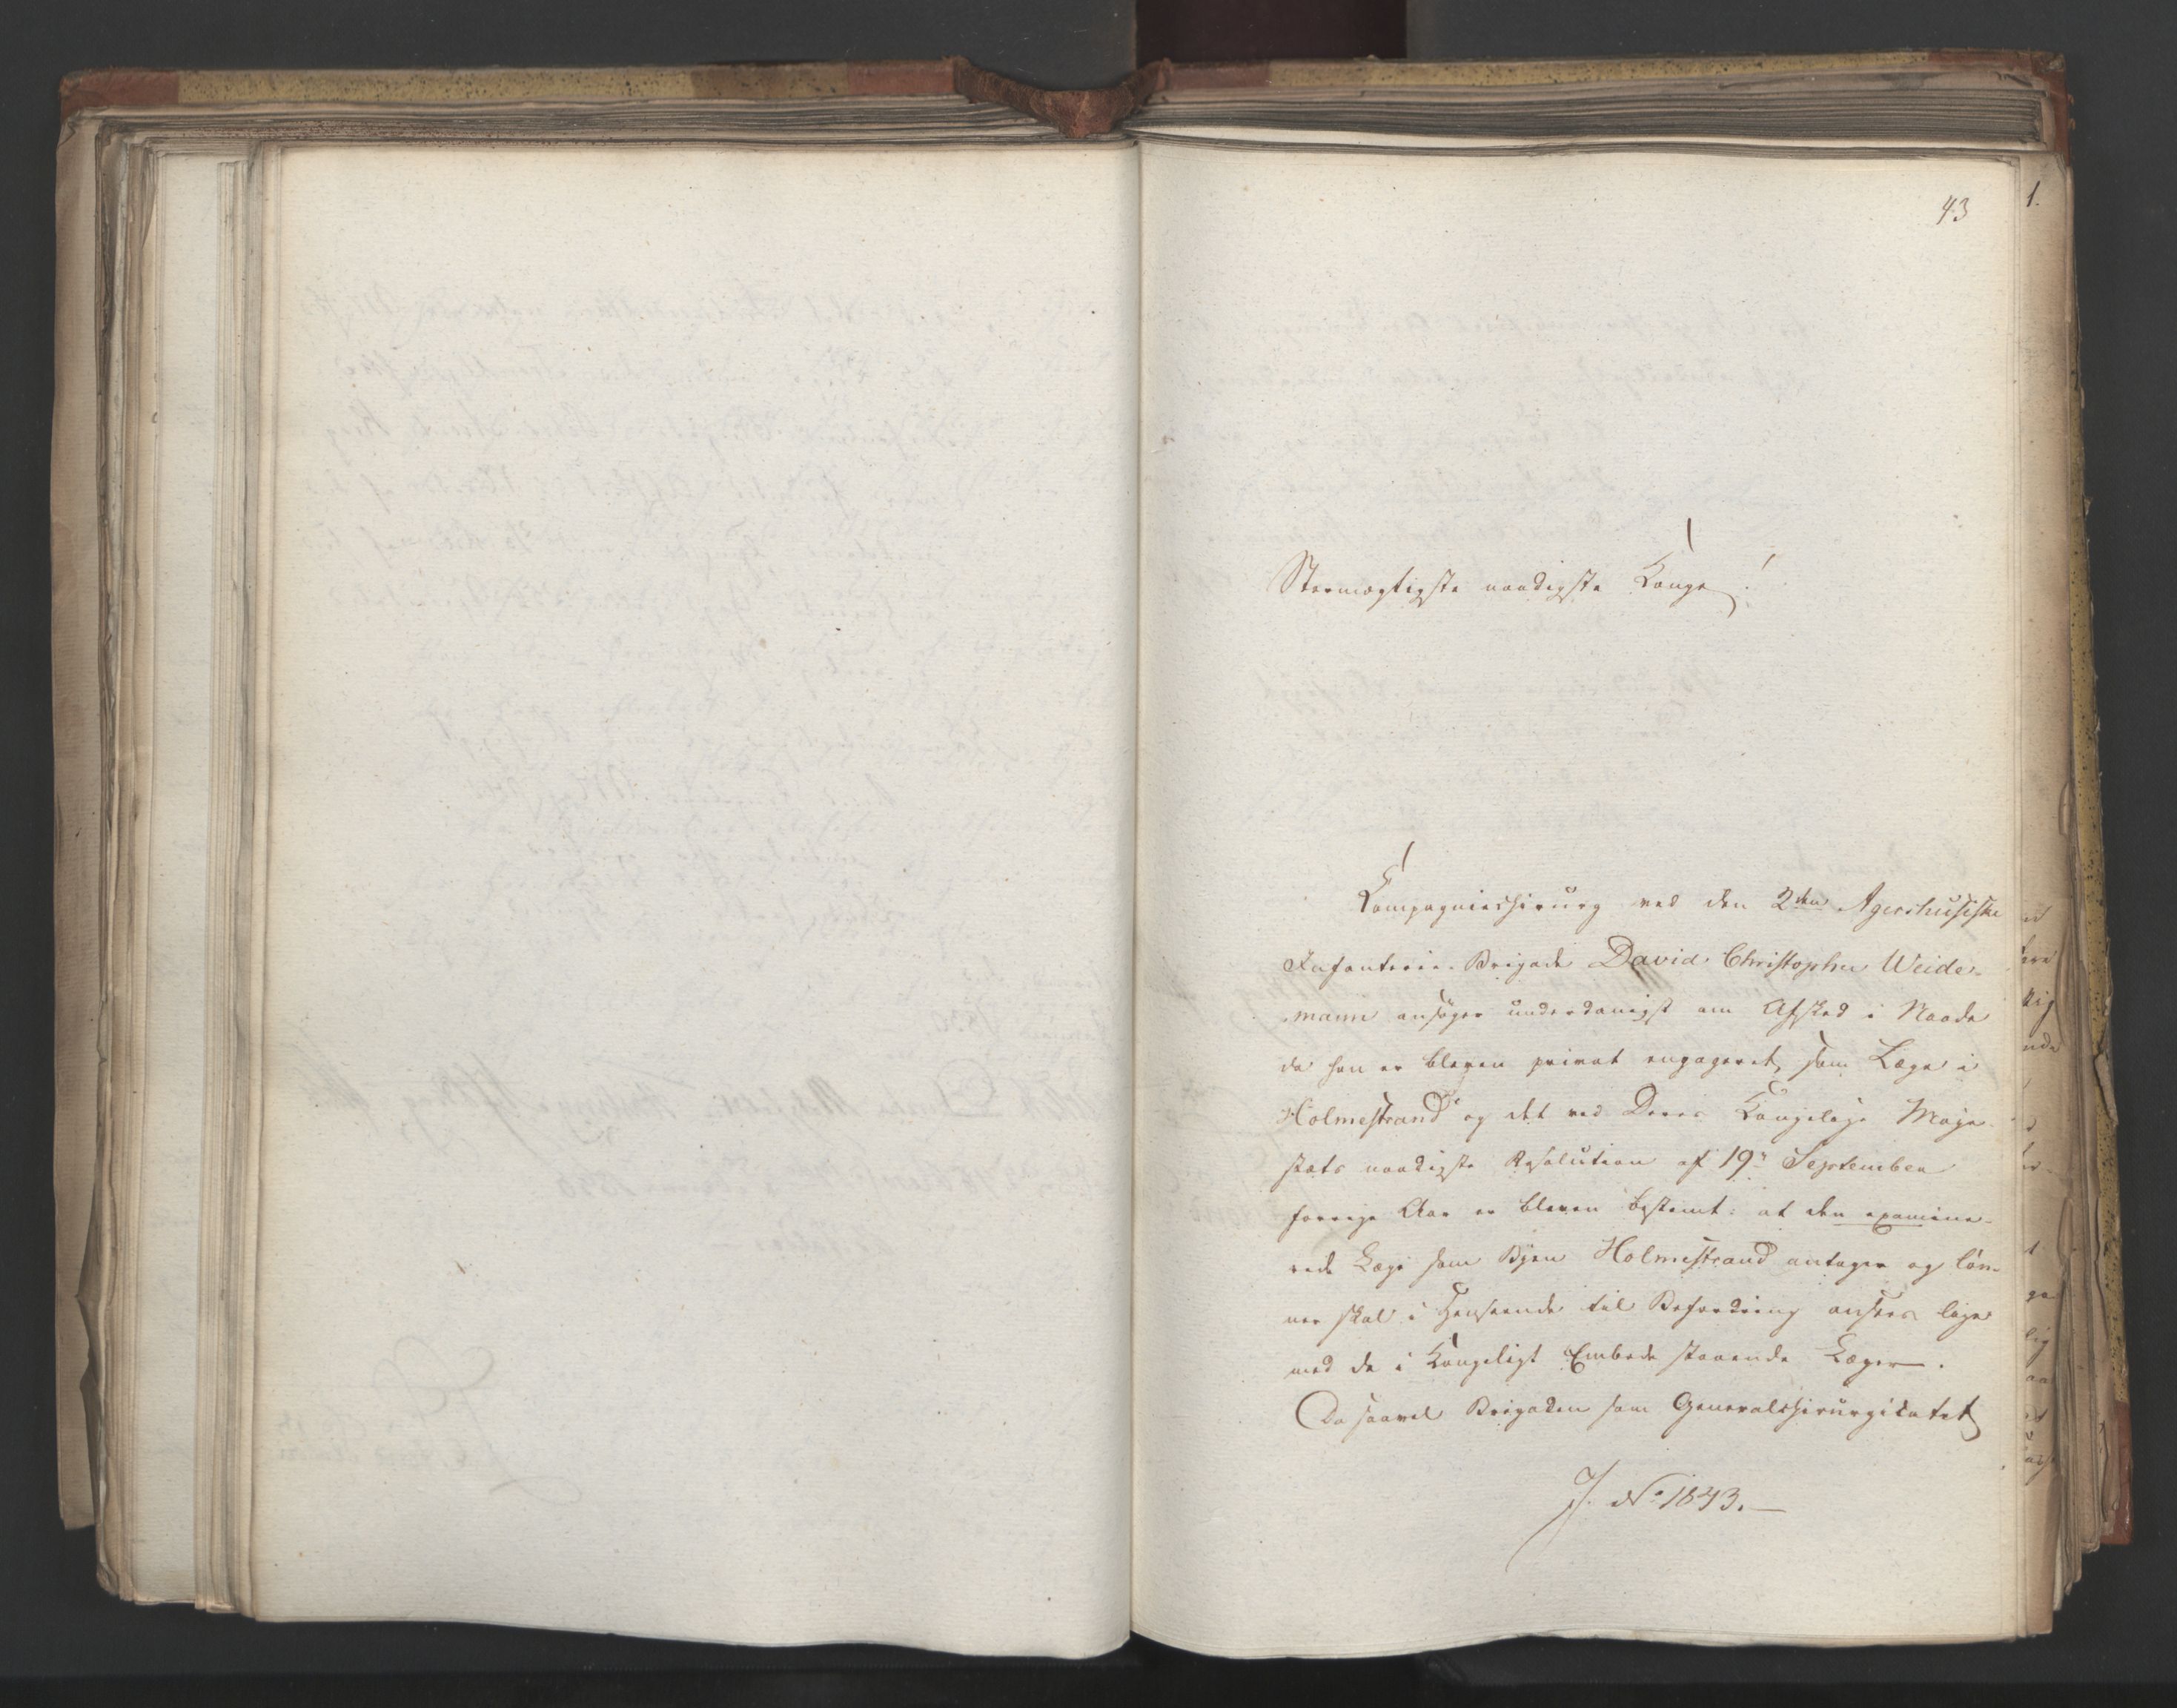 43
Stormægtigste naadigste Konge!
Kompagniechirurg ved den 2den Agershusiske
Infanterie-Brigade David Christopher Weide-
mann ansøger underdanigst om Afsked i Naade
da han er bleven privat engageret som Læge i
Holmestrand og det ved Deres Kongelige Maje-
stæts naadigste Resolution af 19de September
forrige Aar er bleven bestemt: at den examine-
rede Læge som Byen Holmestrand antager og løn-
ner skal i Henseende til Befordring ansees lige
med de i Kongeligt Embede staaende Læger.
Da saavel Brigaden som Generalchirurgikatet
J. No 1843.
1.